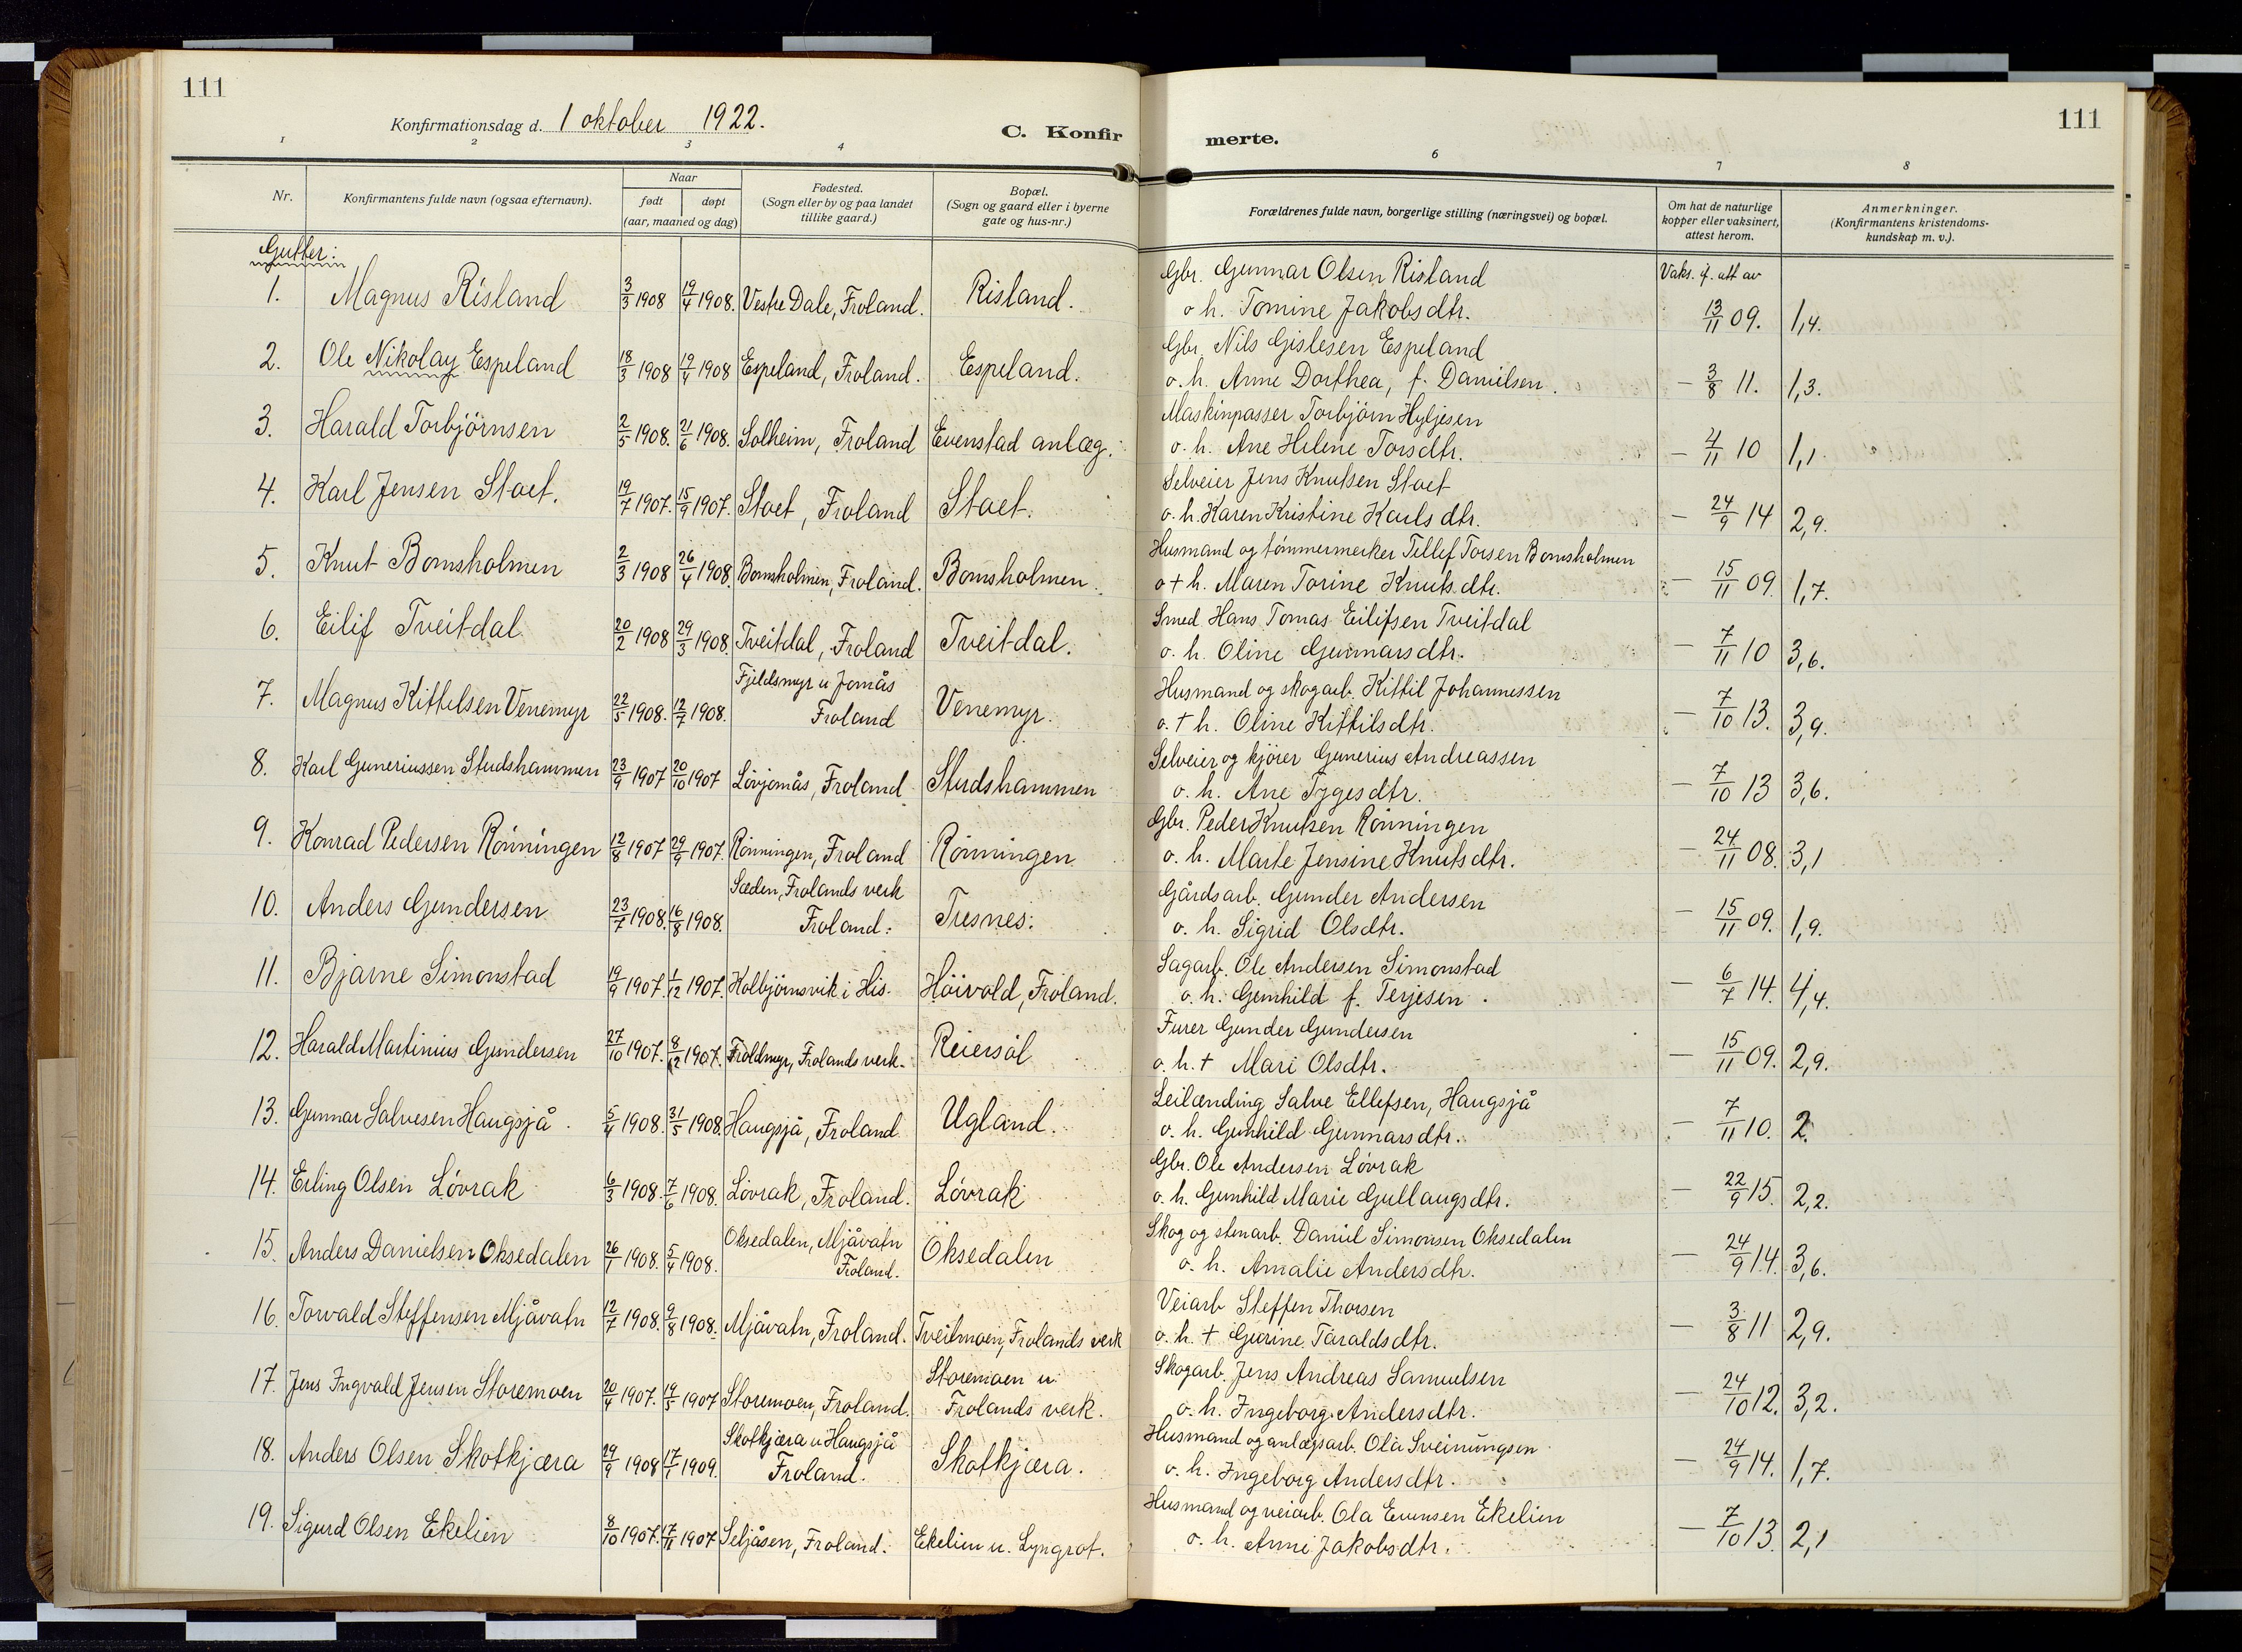 111
Konfirmationsdag d. 1 oktober 1922.
C. Konfirmerte.
111
1 2 3 4 6 7 8
Nr.
Konfirmantens fulde navn (ogsaa efternavn).
Naar
født døpt
(aar, maaned og dag)
Fødested.
(Sogn eller by og paa landet
tillike gaard.)
Bopæl.
(Sogn og gaard eller i byerne
gate og hus-nr.)
Forældrenes fulde navn, borgerlige stilling (næringsvei) og bopæl.
Om hat de naturlige
kopper eller vaksinert,
attest herom.
Anmerkninger.
(Konfirmantens kristendoms-
kundskap m. v.).
Gutter:
Gbr. Gunnar Olsen Risland Vaks. f. att av
1. Magnus Risland 3/3 1908 19/4 1908. Vestre Dale, Froland. Risland. o h. Tomine Jakobsdtr. 13/11 09. 1,4.
Gbr. Nils Gislesen Espeland
2. Ole Nikolay Espeland 18/3 1908 19/4 1908 Espeland, Froland. Espeland. o. h. Anne Dorthea, f. Danielsen. – 3/8 11. 1,3.
Maskinpasser Torbjörn Hyljesen
3. Harald Torbjörnsen 2/5 1908. 21/6 1908. Solheim, Froland Evenstad anlæg. o. h. Ane Helene Torsdtr. – 4/11 10 1,1.
Selveier Jens Knutsen Stoet
4. Karl Jensen Stoet. 19/7 1907. 15/9 1907. Stoet, Froland Stoet. o. h. Karen Kristine Karlsdtr. – 24/9 14 2,9.
Husmand og tømmermerker Tellef Torsen Bomsholmen
5. Knut Bomsholmen 2/3 1908 26/4 1908. Bomsholmen, Froland. Bomsholmen. o + h. Maren Torine Knutsdtr. – 15/11 09. 1,7.
Smed Hans Tomas Eilifsen Tveitdal
6. Eilif Tveitdal 20/2 1908 29/3 1908. Tveitdal, Froland Tveitdal. o. h. Oline Gunnarsdtr. – 7/11 10 3,6.
Fjeldsmyr u Jomås Husmand og skogarb. Kittil Johannessen
7. Magnus Kittelsen Venemyr 22/5 1908. 12/7 1908. Froland Venemyr. o. + h. Oline Kittilsdtr. – 7/10 13. 3,9.
Selveier og kjörer Gunerius Andreassen
8. Karl Guneriussen Studshammen 23/9 1907 20/10 1907 Lövjomås, Froland Studshammen o. h. Ane Tygesdtr. – 7/10 13 3,6.
Gbr. Peder Knutsen Rönningen
9. Konrad Pedersen Rönningen 12/8 1907 29/9 1907. Rönningen, Froland Rönningen o. h. Marte Jensine Knutsdtr. – 24/11 08. 3,1
Sæden, Frolands verk Gårdsarb. Gunder Andersen
10. Anders Gundersen 23/7 1908. 16/8 1908. Froland. Tresnes. o. h. Sigrid Olsdtr. – 15/11 09. 1,9.
Sagarb. Ole Andersen Simonstad
11. Bjarne Simonstad 19/9 1907. 1/12 1907. Kolbjörnsvik i His. Höivold, Froland. o. h. Gunhild f. Terjesen. – 6/7 14. 4,4.
Furer Gunder Gundersen
12. Harald Martinius Gundersen 27/10 1907. 8/12 1907. Froldmyr, Frolands verk. Reiersöl o. h. + Mari Olsdtr. – 15/11 09. 2,9.
Leilænding Salve Ellefsen, Haugsjå
13. Gunnar Salvesen Haugsjå. 5/4 1908. 31/5 1908. Haugsjå, Froland Ugland. o. h. Gunhild Gunnarsdtr. – 7/11 10. 2.
Gbr. Ole Andersen Lövrak
14. Erling Olsen Lövrak 6/3 1908. 7/6 1908. Lövrak, Froland. Lövrak o. h. Gunhild Marie Gullaugsdtr. – 22/9 15. 2,2.
Oksedalen, Mjåvatn Skog og stenarb. Daniel Simonsen Oksedalen
15. Anders Danielsen Oksedalen 26/1 1908. 5/4 1908. Froland. Oksedalen o. h. Amalie Andersdtr. – 24/9 14. 3,6.
Veiarb Steffen Thorsen
16. Torvald Steffensen Mjåvatn 12/7 1908. 9/8 1908. Mjåvatn, Froland. Tveitmoen, Frolands verk o. h. + Gurine Taraldsdtr. – 3/8 11 2,9.
Storemoen u Skogarb. Jens Andreas Samuelsen
17. Jens Ingvald Jensen Storemoen 20/4 1907. 19/5 1907 Storemoen, Froland. Frolands verk. o. h. Ingeborg Andersdtr. – 24/10 12. 3,2.
Skotkjæra u Haugsjå Husmand og anlægsarb. Ola Sveinungsen
18. Anders Olsen Skotkjæra 29/9 1908 17/1 1909. Froland. Skotkjæra. o. h. Ingeborg Andersdtr. – 24/9 14. 1,7.
Husmand og veiarb. Ola Evensen Ekelien
19. Sigurd Olsen Ekelien 8/10 1907. 17/11 1907 Seljåsen, Froland. Ekelien u. Lyngrot. o. h. Anne Jakobsdtr. – 7/10 13. 2,1